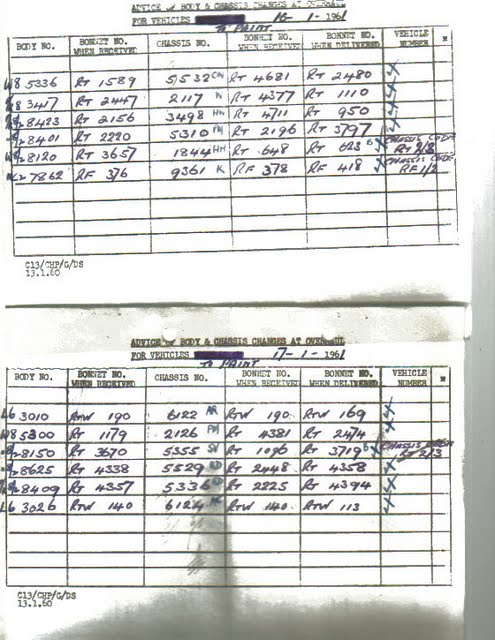 ADVICE OF BODY & CHASSIS CHANGES AT OVERHAUL
FOR VEHICLES 16-1-1961
TO PAINT
BODY NO. BONNET NO. WHEN RECEIVED CHASSIS NO. BONNET NO. WHEN RECEIVED BONNET NO. WHEN DELIVERED VEHICLE NUMBER
W8 5336 RT 1589 5532 RT 4681 RT 2480
8 3417 RT 2447 2117 RT 4377 RT 1110
8423 RT 2156 3498 HH RT 4711 RT 950
8401 RT 2220 5310 RT 2196 RT 3797
8120 RT 3657 1844 HH RT 648 RT 623 CHASSIS CODE RT 2/3
7862 RF 376 9361 K RF 378 RF 418 CHASSIS CODE RF 1/2
C13/CHP/G/DS
13.1.60
ADVICE OF BODY & CHASSIS CHANGES AT OVERHAUL
FOR VEHICLES 17-1-1961
TO PAINT
BODY NO. BONNET NO. WHEN RECEIVED CHASSIS NO. BONNET NO. WHEN RECEIVED BONNET NO. WHEN DELIVERED VEHICLE NUMBER
L6 3010 RTW 190 6122 AR RTW 190 RTW 169
W8 5300 RT 1179 2126 RT 4381 RT 2474
8150 RT 3670 5355 RT 1096 RT 3719 CHASSIS RT 2/3
8625 RT 4338 5529 RT 2448 RT 4358
8409 RT 4357 5336 RT 2225 RT 4394
L6 3026 RTW 140 6124 RTW 140 RTW 113
C13/CHP/G/DS
13.1.60